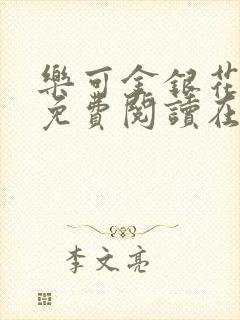 樂可金銀花
免費閱讀在
李文亮